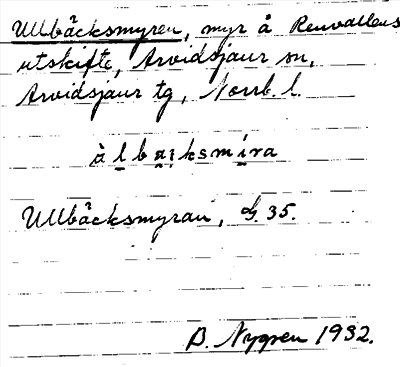 Ullbäcksmyren, myr å Renvallens
utskifte, Arvidsjaur sn,
Arvidsjaur tg, Norrb. l.
àl̲ba̲i̲ksmi̲ra
Ullbäcksmyran, G. 35.
B. Nygren 1932.